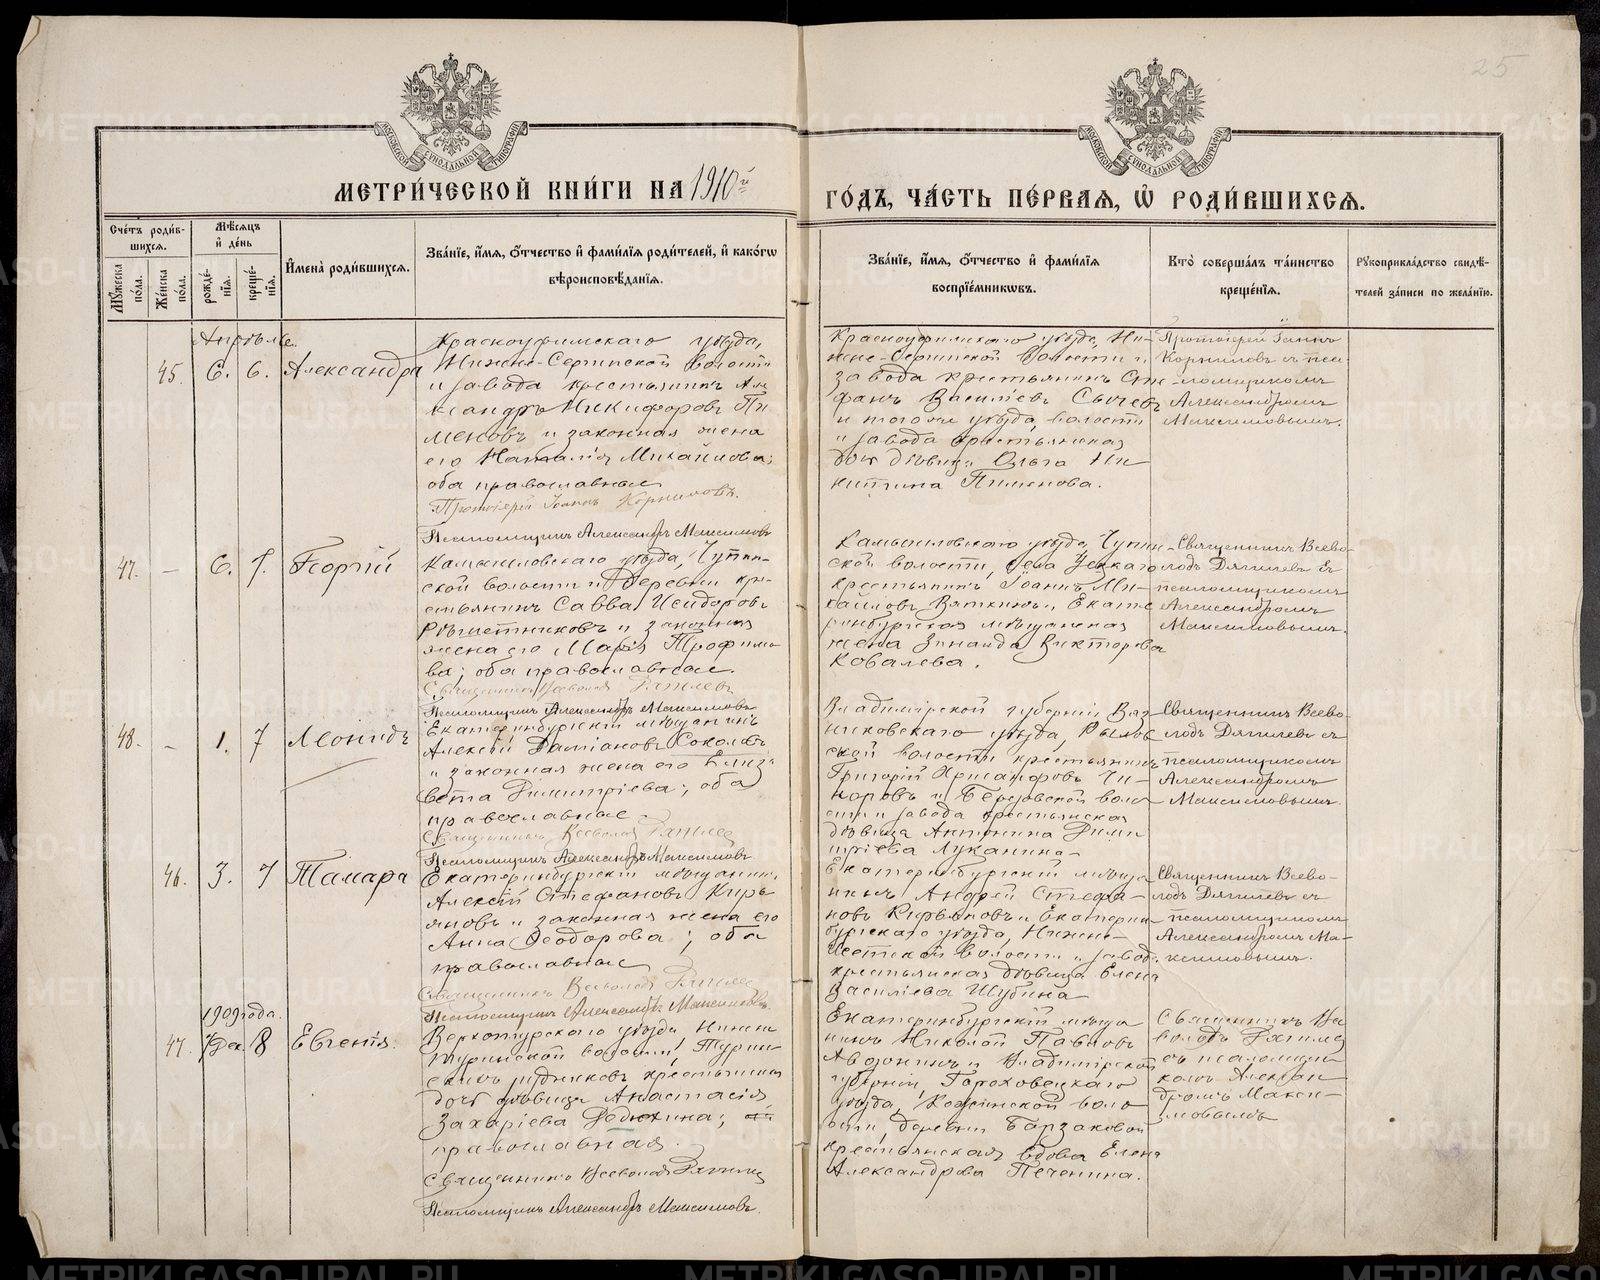 25
МОСКОВСКОЙ СѴНОДАЛЬНОЙ ТИПОГРАФІИ
МОСКОВСКОЙ СѴНОДАЛЬНОЙ ТИПОГРАФІИ
МЕТРИ́ЧЕСКОЙ КНИ́ГИ НА 1910й
ГО́ДЪ, ЧА́СТЬ ПЕ́РВАѦ, Ѡ҆ РОДИ́ВШИХСѦ.
Сче́тъ роди́в-
шихсѧ.
Мꙋ́жеска по́ла.
Же́нска по́ла.
Мѣ́сѧцъ
и҆ де́нь
рожде́-
нїѧ.
креще́-
нїѧ.
И҆мена̀ роди́вшихсѧ.
Зва́нїе, и҆́мѧ, ѻ҆́тчество и҆ фами́лїѧ роди́телей, и҆ како́гѡ
вѣроисповѣ́данїѧ.
Зва́нїе, и҆́мѧ, ѻ҆́тчество и҆ фами́лїѧ
воспрїе́мникѡвъ.
Кто̀ соверша́лъ та́инство
креще́нїѧ.
Рꙋкоприкла́дство свидѣ́-
телей за́писи по жела́нїю.
Апрѣль.
45. 6. 6. Александра
Красноуфимскаго уѣзда,
Нижне-Сергинской волости
и завода крестьянинъ Але
ксандръ Никифоровъ Пи
меновъ и законная жена
его Наталія Михайлова;
оба православные
Протоіерей Іоаннъ Корниловъ.
Псаломщикъ Александръ Максимовъ
Красноуфимскаго уѣзда, Ни-
жне-Сергинской волости и
завода крестьянинъ Сте
фанъ Василіевъ Сычевъ
и того же уѣзда, волости
и завода крестьянская
дочь дѣвица Ольга Ни
китина Пименова.
Протоіерей Іоаннъ
Корниловъ съ пса-
ломщикомъ
Александромъ
Максимовымъ.
47. — 6. 7. Георгій
Камышловскаго уѣзда,
ской волости и деревни кре-
стьянинъ Савва Исидоровъ
Рѣшетниковъ и законная
жена его Марія Трофимо
ва; оба православные.
Священникъ Всеволодъ Дягилевъ
Псаломщикъ Александръ Максимовъ
Камышловскаго уѣзда,
ской волости, села
крестьянинъ Іоаннъ Ми-
хайловъ Вяткинъ и Екате
ринбургская мѣщанская
жена Зинаида Викторова
Ковалева.
Священникъ Всево-
лодъ Дягилевъ съ
псаломщикомъ
Александромъ
Максимовымъ.
48. — 1. 7 Леонидъ
Екатеринбургскій мѣщанинъ
Алексѣй Даміановъ Соколовъ
и законная жена его Елиза
вета Димитріева; оба
православные
Священникъ Всеволодъ Дягилевъ
Псаломщикъ Александръ Максимовъ.
Владимірской губерніи, Вяз
никовскаго уѣзда,
ской волости крестьянинъ
Григорій Хрисанфовъ
и Березовской воло
сти и завода крестьянская
дѣвица Антонина Дими
тріева Луканина
Священникъ Всево-
лодъ Дягилевъ съ
псаломщикомъ
Александромъ
Максимовымъ.
46. 3. 7 Тамара
Екатеринбургскій мѣщанинъ
Алексій Стефановъ Кирь
яновъ и законная жена его
Анна Ѳеодорова; оба
православные
Священникъ Всеволодъ Дягилевъ
Псаломщикъ Александръ Максимовъ.
Екатеринбургскій мѣща
нинъ Андрей Стефа-
новъ Кирьяновъ и Екатерин
бургскаго уѣзда, Нижне-
Исетской волости и завода
крестьянская дѣвица Елена
Василіева Шубина
Священникъ Всево-
лодъ Дягилевъ съ
псаломщикомъ
Александромъ Ма-
ксимовымъ.
1909 года.
47. Дек. 8 Евгенія.
Верхотурскаго уѣзда, Нижне
Туринской волости, Турин
скихъ рудниковъ крестьянская
дочь дѣвица Анастасія
Захаріева Дедюхина;
православная.
Священникъ Всеволодъ Дягилевъ
Псаломщикъ Александръ Максимовъ.
Екатеринбургскій мѣща
нинъ Николай Павловъ
Авдонинъ и Владимірской
губерніи, Гороховецкаго
уѣзда, воло
сти, деревни
крестьянская вдова Елена
Александрова Печенина.
Священникъ Все
володъ Дягилевъ
съ псаломщи-
комъ Алексан
дромъ Макси-
мовымъ
METRIKI.GASO-URAL.RU